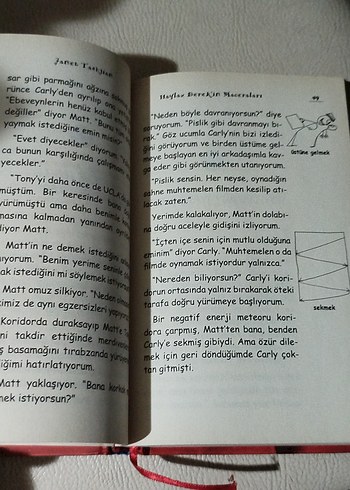 Janet Tashjian
sar gibi parmağını ağzına
rünce Carly'den ayrılıp onu
"Ebeveynlerin henüz kabul
değiller" diyor Matt. "Bunu
yaymak istediğine emin
"Evet diyecekler" diyorum.
ca bunun karşılığında çalışman
yecekler."
"Tony'yi daha önce de UCLA
müştüm. Bir keresinde bana
yürümüştü ama daha benimle
masına kalmadan yanından
diyor Matt.
Matt'in ne demek istediğini
nıyorum. "Benim yerime senin
ak istediğini mi söylemek istiyor
Matt omuz silkiyor. "Neden
imiz de aynı egzersizleri yapıyor
Koridorda duraksayıp Matt'e
ni takdir ettiğinde merdiven
ş basamağını tırabzanda
iğimi hatırlatıyorum.
Matt yaklaşıyor. "Bana
mek istiyorsun?"
Haylaz Derek'in Maceraları
49
"Neden böyle davranıyorsun?" diye
soruyorum. "Pislik gibi davranmayı bı-
rak." Göz ucumla Carly'nin bizi izledi-
ğini görüyorum ve birden üstüme gel-
meye başlayan en iyi arkadaşımla kav-
ga eder gibi görünmekten utanıyorum.
"Pislik sensin. Her neyse, aynadığın
sahne muhtemelen filmden kesilip atı-
lacak zaten."
Yerimde kalakalıyor, Matt'in dolabı-
na doğru aceleyle gidişini izliyorum.
"İçten içe senin için mutlu olduğuna
eminim" diyor Carly. "Muhtemelen o da
filmde oynamak istiyordur yalnızca."
"Nereden biliyorsun?" Carly'i kori-
dorun ortasında yalnız bırakarak öteki
tarafa doğru yürümeye başlıyorum.
Bir negatif enerji meteoru kori-
dora çarpmış, Matt'ten bana, benden
Carly'e sekmiş gibiydi. Ama özür dile-
mek için geri döndüğümde Carly çok-
tan gitmişti.
üstüne gelmek
sekmek